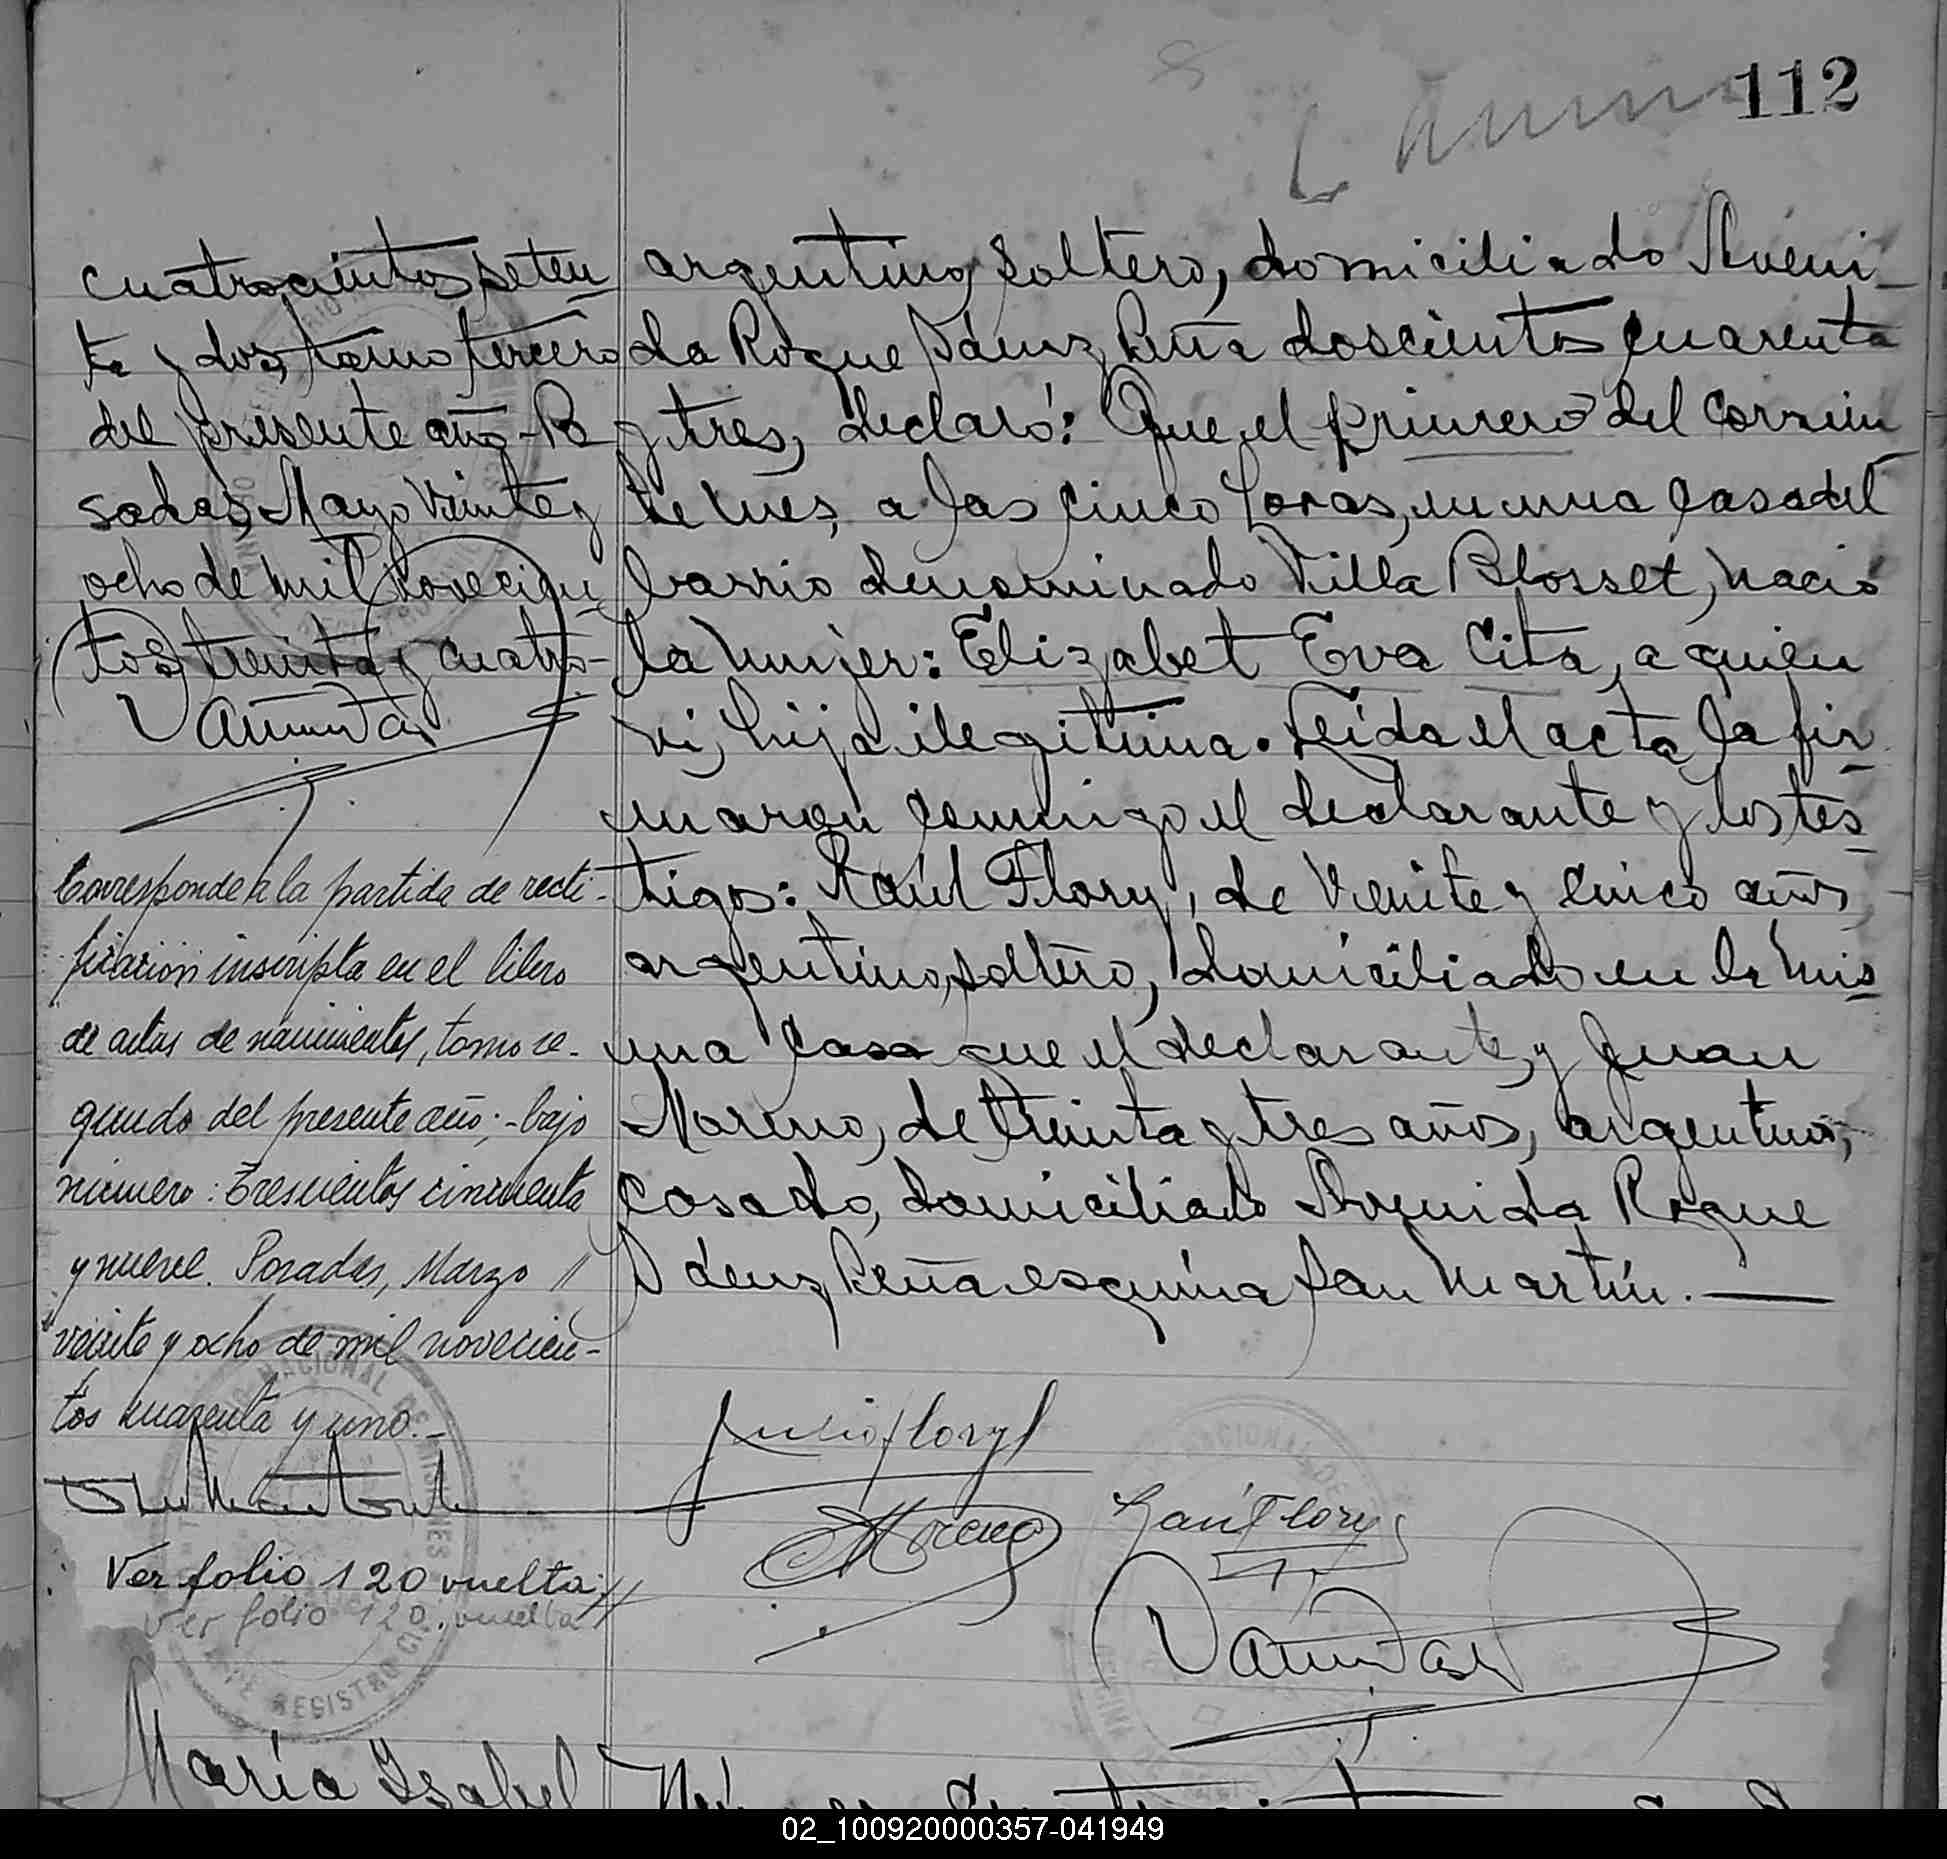 112
cuatrocientos seten
ta y dos, tomo tercero
del presente año - Po
sadas, Mayo veinte y
ocho de mil novecien
tos treinta y cuatro-
Corresponde a la partida de recti-
ficación inscripta en el libro
de actas de nacimientos, tomo se-
gundo del presente año; - bajo
número: Trescientos cincuenta
y nueve. Posadas, Marzo //
veinte y ocho de mil novecien-
tos cuarenta y uno.-
Ver folio 120 vuelta //
Ver folio 120. vuelta //
María Isabel
argentino, soltero, domiciliado Aveni-
da Roque Sáenz Peña doscientos cuarenta
y tres, declaró: Que el primero del corrien
te mes, a las cinco horas, en una casa del
barrio denominado Villa Blosset, nació
la mujer: Elizabet Eva Cita, a quien
vi, hija ilegítima. Leída el acta, la fir-
maron conmigo el declarante y los tes-
tigos: Raúl Flory, de veinte y cinco años,
argentino, soltero, domiciliado en la mis-
ma casa que el declarante, y Juan
Moreno, de treinta y tres años, argentino,
casado, domiciliado Avenida Roque
Sáenz Peña esquina San Martín. —
Julio Flory
Moreno
Raúl Flory
REGISTRO CI
02_100920000357-041949